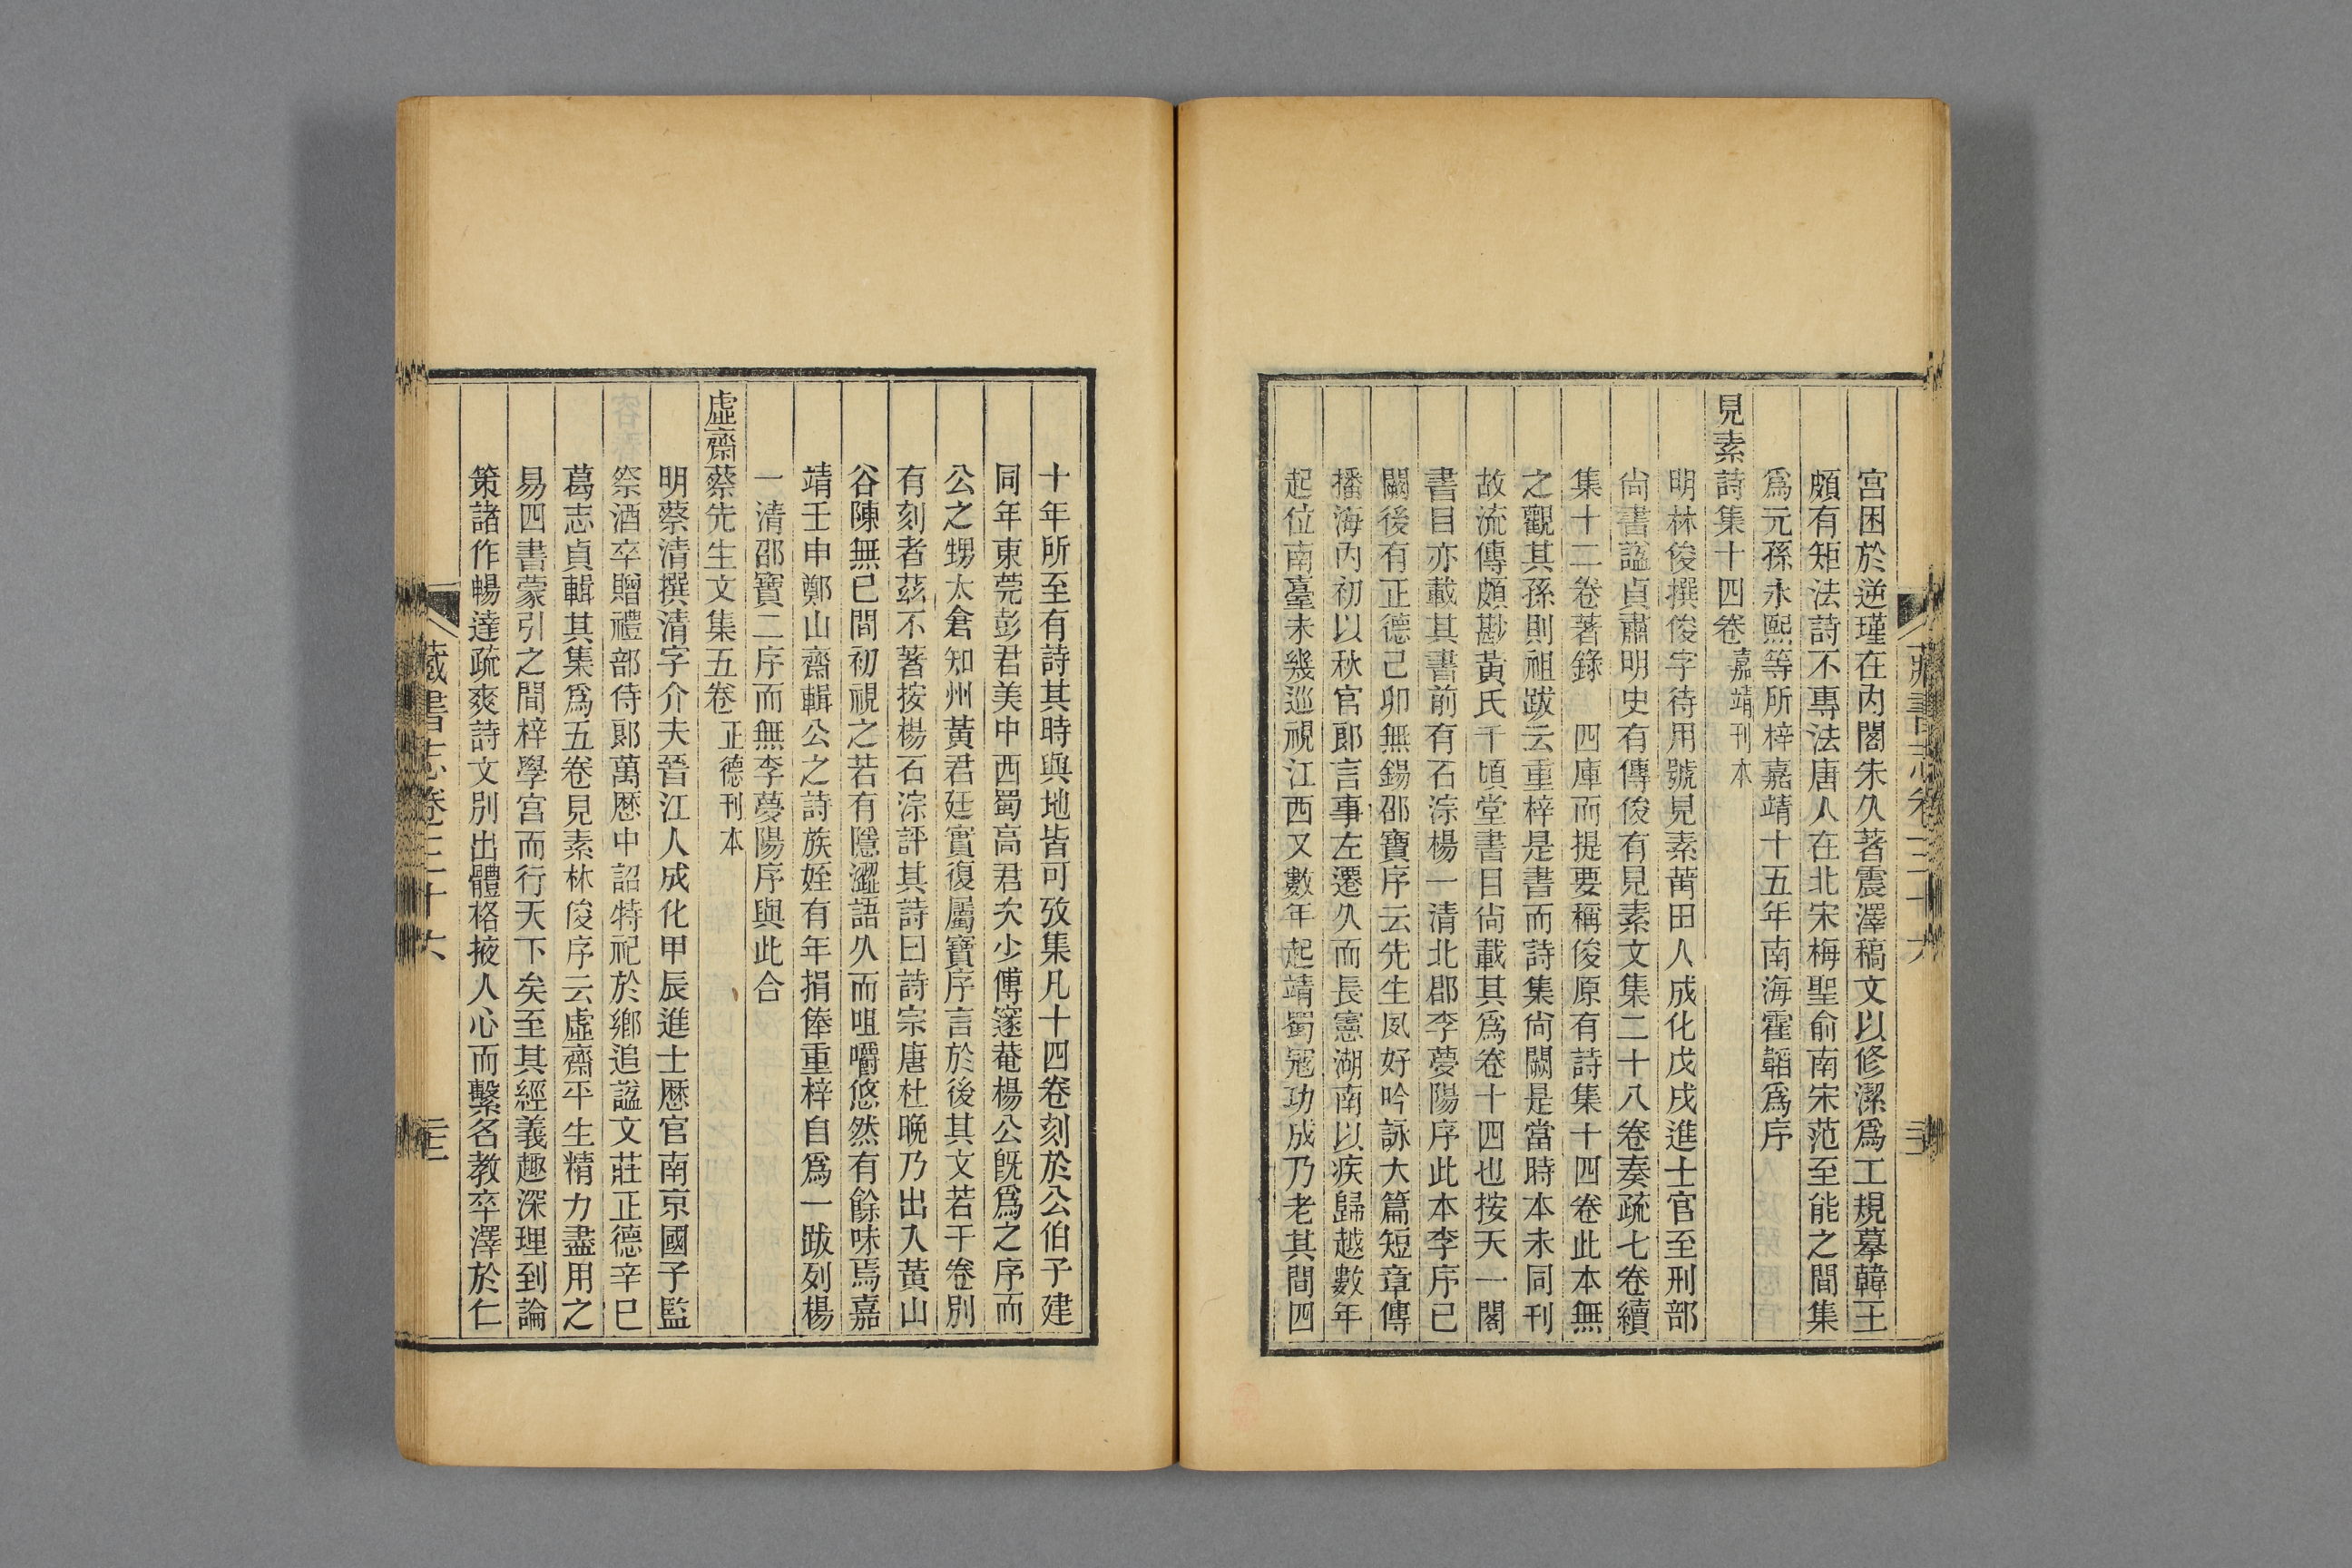 宫困於逆瑾在内閣朱久著震澤稿文以修潔爲工規摹韓王
頗有矩法詩不專法唐人在北宋梅聖俞南宋范至能之間集
爲元孫永熙等所梓嘉靖十五年南海霍韜爲序
見素詩集十四卷嘉靖刊本
明林俊撰俊字待用號見素莆田人成化戊戌進士官至刑部
尚書諡貞肅明史有傳俊有見素文集二十八卷奏疏七卷續
集十二卷著錄　四庫而提要稱俊原有詩集十四卷此本無
之觀其孫則祖跋云重梓是書而詩集尚闕是當時本未同刊
故流傳頗尠黃氏千頃堂書目尚載其爲卷十四也按天一閣
書目亦載其書前有石淙楊一清北郡李夢陽序此本李序已
闕後有正德己卯無錫邵寶序云先生夙好吟詠大篇短章傳
播海内初以秋官郎言事左遷久而長憲湖南以疾歸越數年
起位南臺未幾巡視江西又數年起靖蜀冦功成乃老其間四
十年所至有詩其時與地皆可攷集凡十四卷刻於公伯子建
同年東莞彭君美中西蜀高君次少傅邃菴楊公旣爲之序而
公之甥太倉知州黃君廷實復屬寶序言於後其文若干卷別
有刻者茲不著按楊石淙評其詩曰詩宗唐杜晚乃出入黃山
谷陳無已間初視之若有隱澀語久而咀嚼悠然有餘味焉嘉
靖壬申鄭山齋輯公之詩族姪有年捐俸重梓自爲一跋列楊
一清邵寶二序而無李夢陽序與此合
虛齋蔡先生文集五卷正德刊本
明蔡清撰清字介夫晉江人成化甲辰進士歷官南京國子監
祭酒卒贈禮部侍郎萬歷中詔特祀於鄉追諡文莊正德辛巳
葛志貞輯其集爲五卷見素林俊序云虛齋平生精力盡用之
易四書蒙引之間梓學宫而行天下矣至其經義趣深理到論
策諸作暢達疏爽詩文別出體格掖人心而繫名教卒澤於仁
藏書志卷三十六